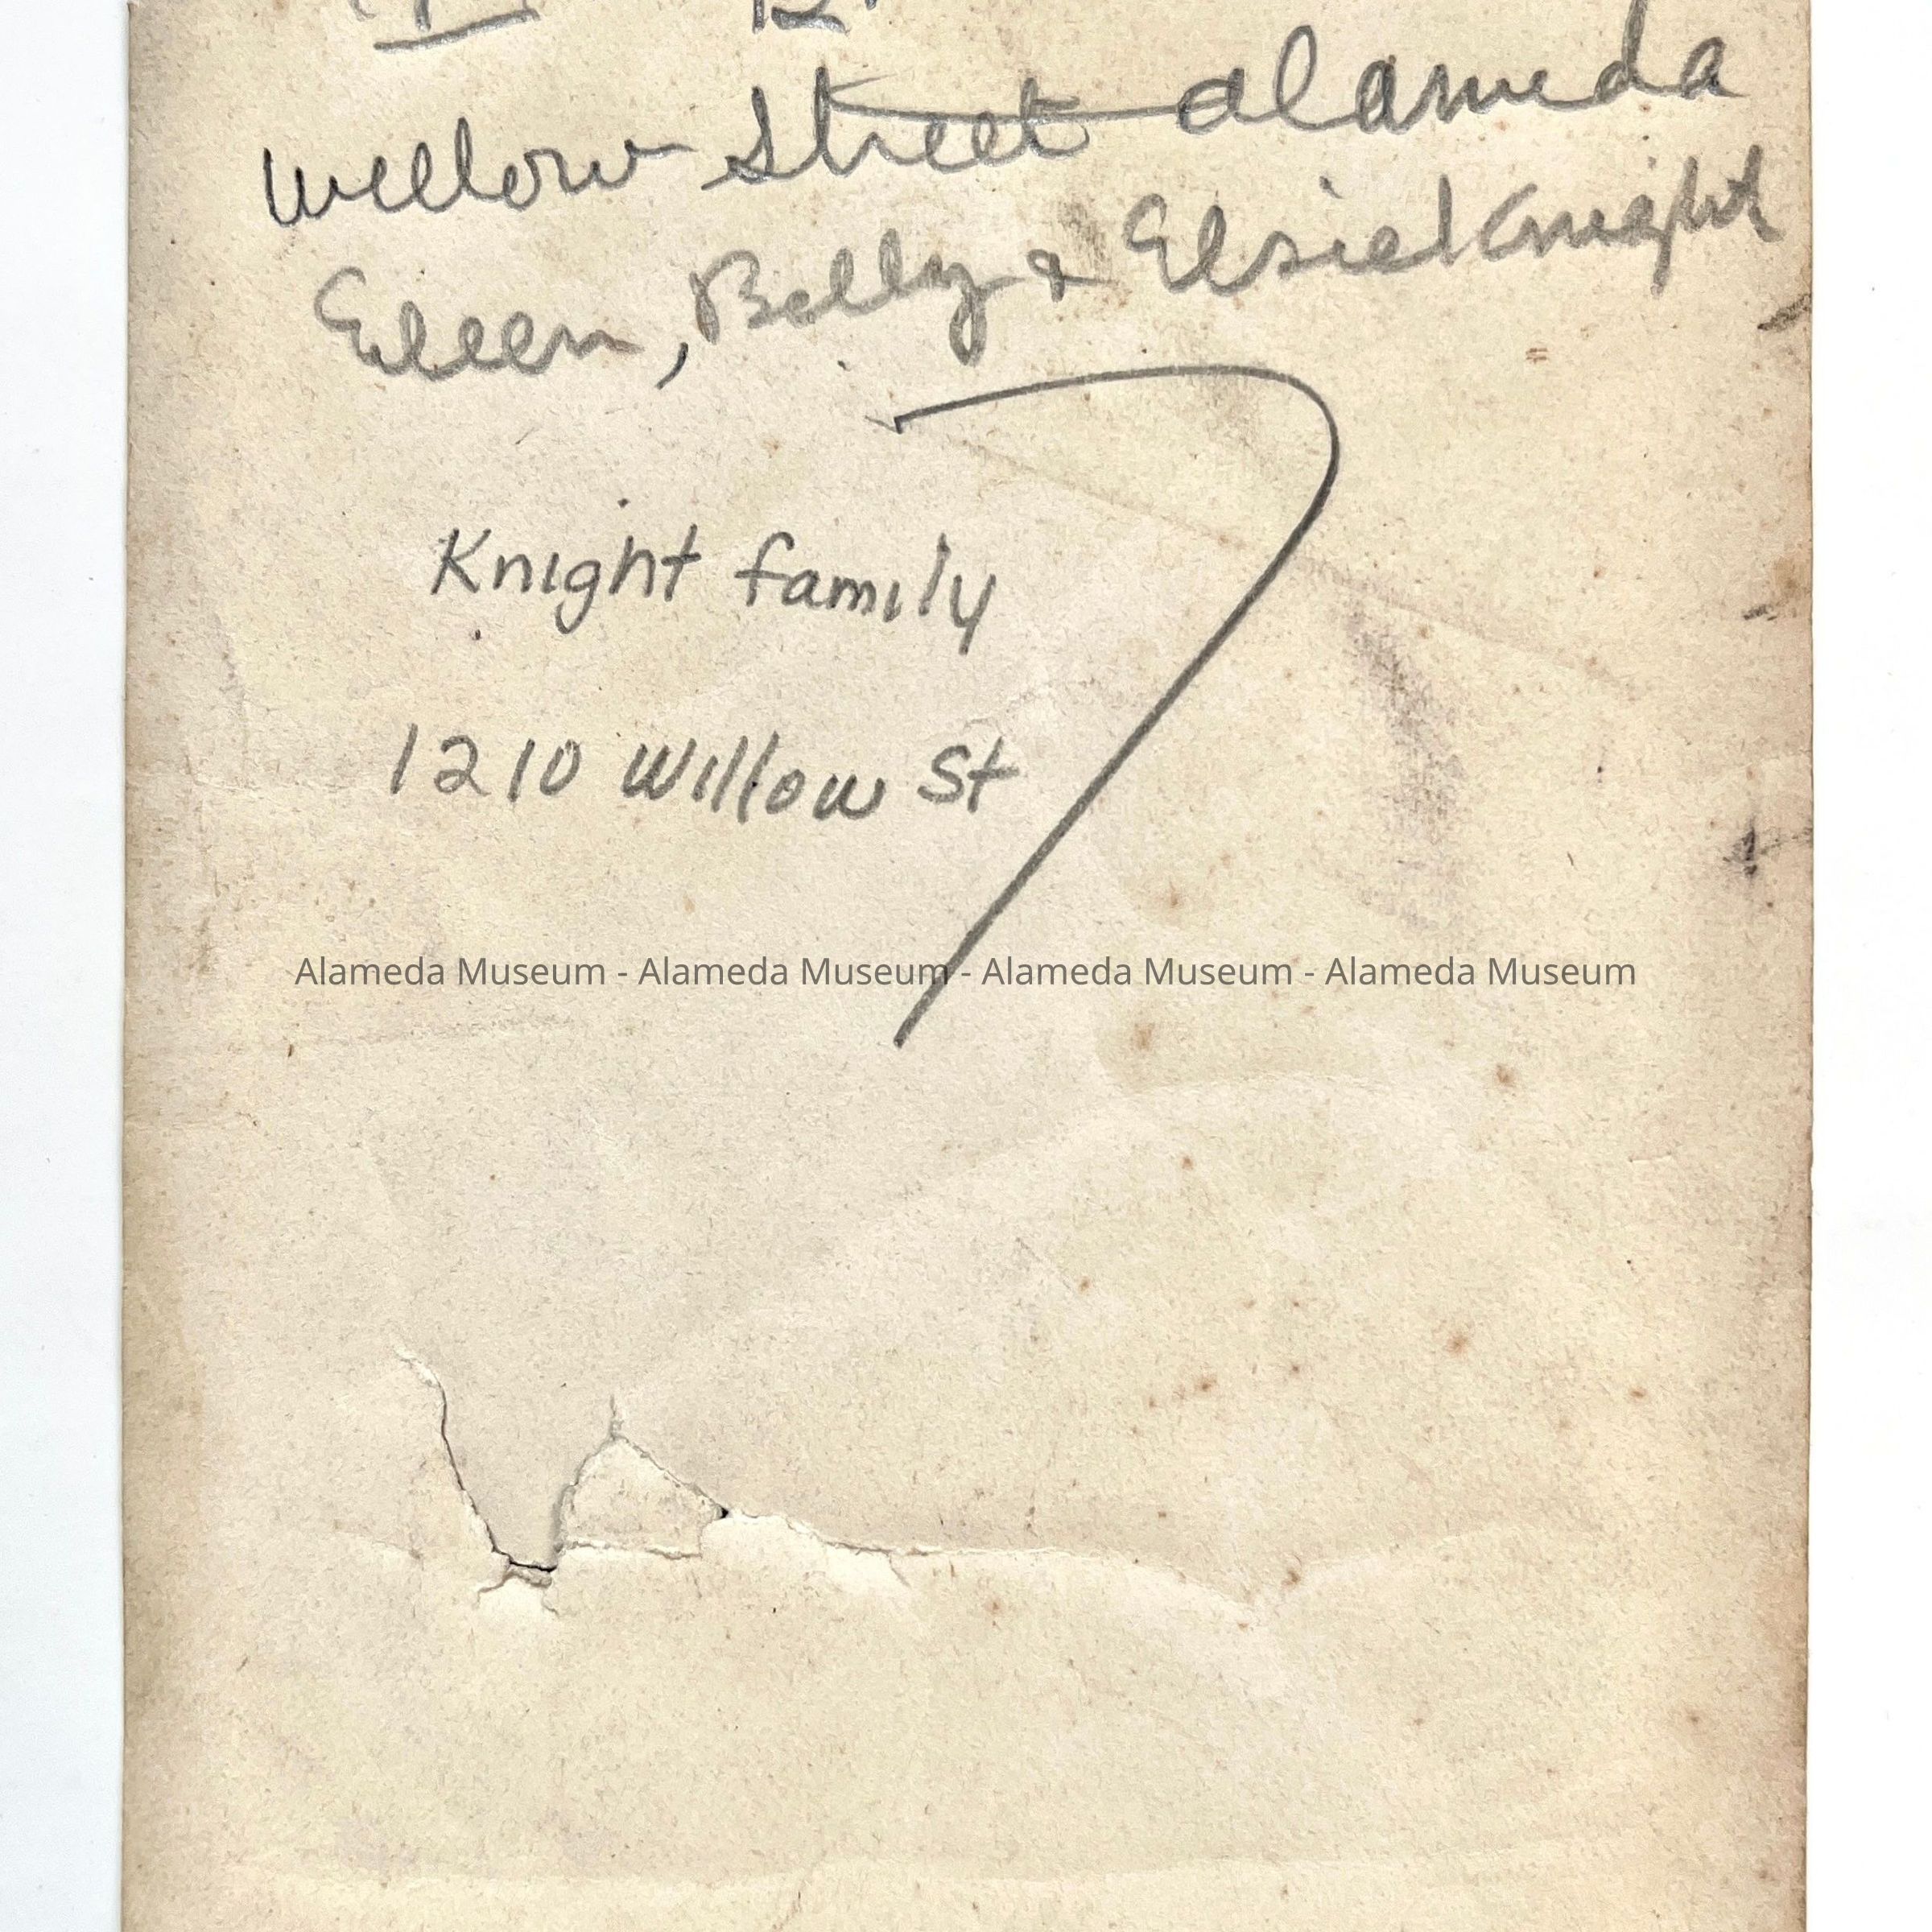 Willow Street Alameda
Eileen, Billy & Elsie Knight
Knight family
1210 Willow St
Alameda Museum - Alameda Museum - Alameda Museum - Alameda Museum